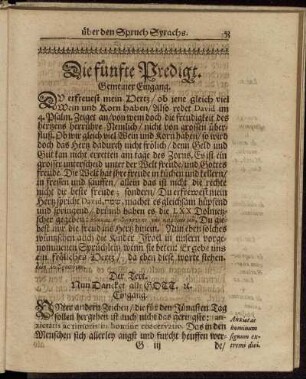 über den Spruch Syrachs.
Die fünfte Predigt.
Gemeiner Eingang.
DU erfreuest mein Hertz / ob jene gleich viel
Wein und Korn haben / Also redet David im
4. Psalm. Zeiget an / von wem doch die freudigkeit des
hertzens herrühre / Nemlich / nicht von grossen über
fluß. Ob wir gleich viel Wein und Korn haben / so wird
doch das Hertz dadurch nicht frölich / denn Geld und
Gut kan nicht erretten am tage des Zorns. Es ist ein
grosser unterscheid unter der Welt freude / und Gottes
freude. Die Welt hat ihre freude in küchen und kellern /
in fressen und sauffen / allein das ist nicht die rechte
nicht die beste freude; sondern / Du erfreuest mein
Hertz spricht David, machet es gleichsam hüpfend
und springend / darumb haben es die LXX Dolmet-
scher gegeben Du gie-
best mir die freude ins Hertz hinein / Nun eben solches
wünschen auch die Kinder Israel in unserm vorge-
nommenen Sprüchlein, wenn sie beten: Er gebe uns
ein fröliches Hertz / da eben diese worte stehen.
Der Text.
Nun Dancket alle GOTT, ꝛc.
Eingang.
Unter andern Zeichen / die für den Jüngsten Tag
sollen hergehen ist auch nicht das geringste:
Das in den
Menschen sich allerley angst und furcht heuffen wer-
G iij
de /
Anxietas
hominum
signum ex-
tremi diei.